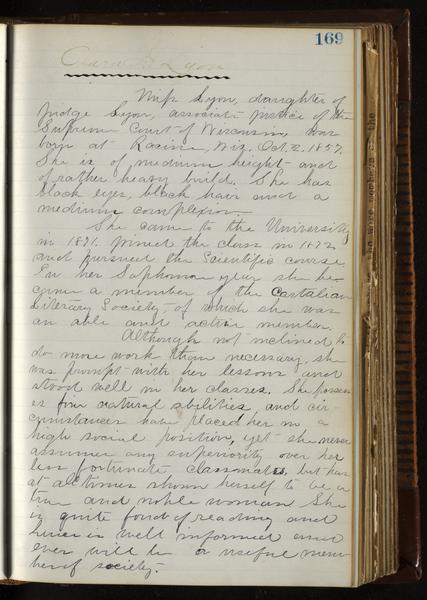 169
Clara B. Lyon
Miss Lyon, daughter of
Judge Lyon, associate justice of the
Supreme Court of Wisconsin, was
born at Racine, Wis. Oct. 2. 1857.
She is of medium height and
of rather heavy build. She has
black eyes, black hair and a
medium complexion.
She came to the University
in 1871. Joined the class in 1872
and pursued the Scientific course.
In her Sophomore year she be-
came a member of the Castalian
Literary Society, of which she was
an able and active member.
Although not inclined to
do more work than necessary, she
was prompt with her lessons and
stood well in her classes. She possess
es fine natural abilities, and cir-
cumstances have placed her in a
high social position, yet she never
assumes any superiority over her
less fortunate classmates, but has
at all times shown herself to be a
true and noble woman. She
is quite fond of reading and
hence is well informed and
ever will be a useful mem-
ber of society.